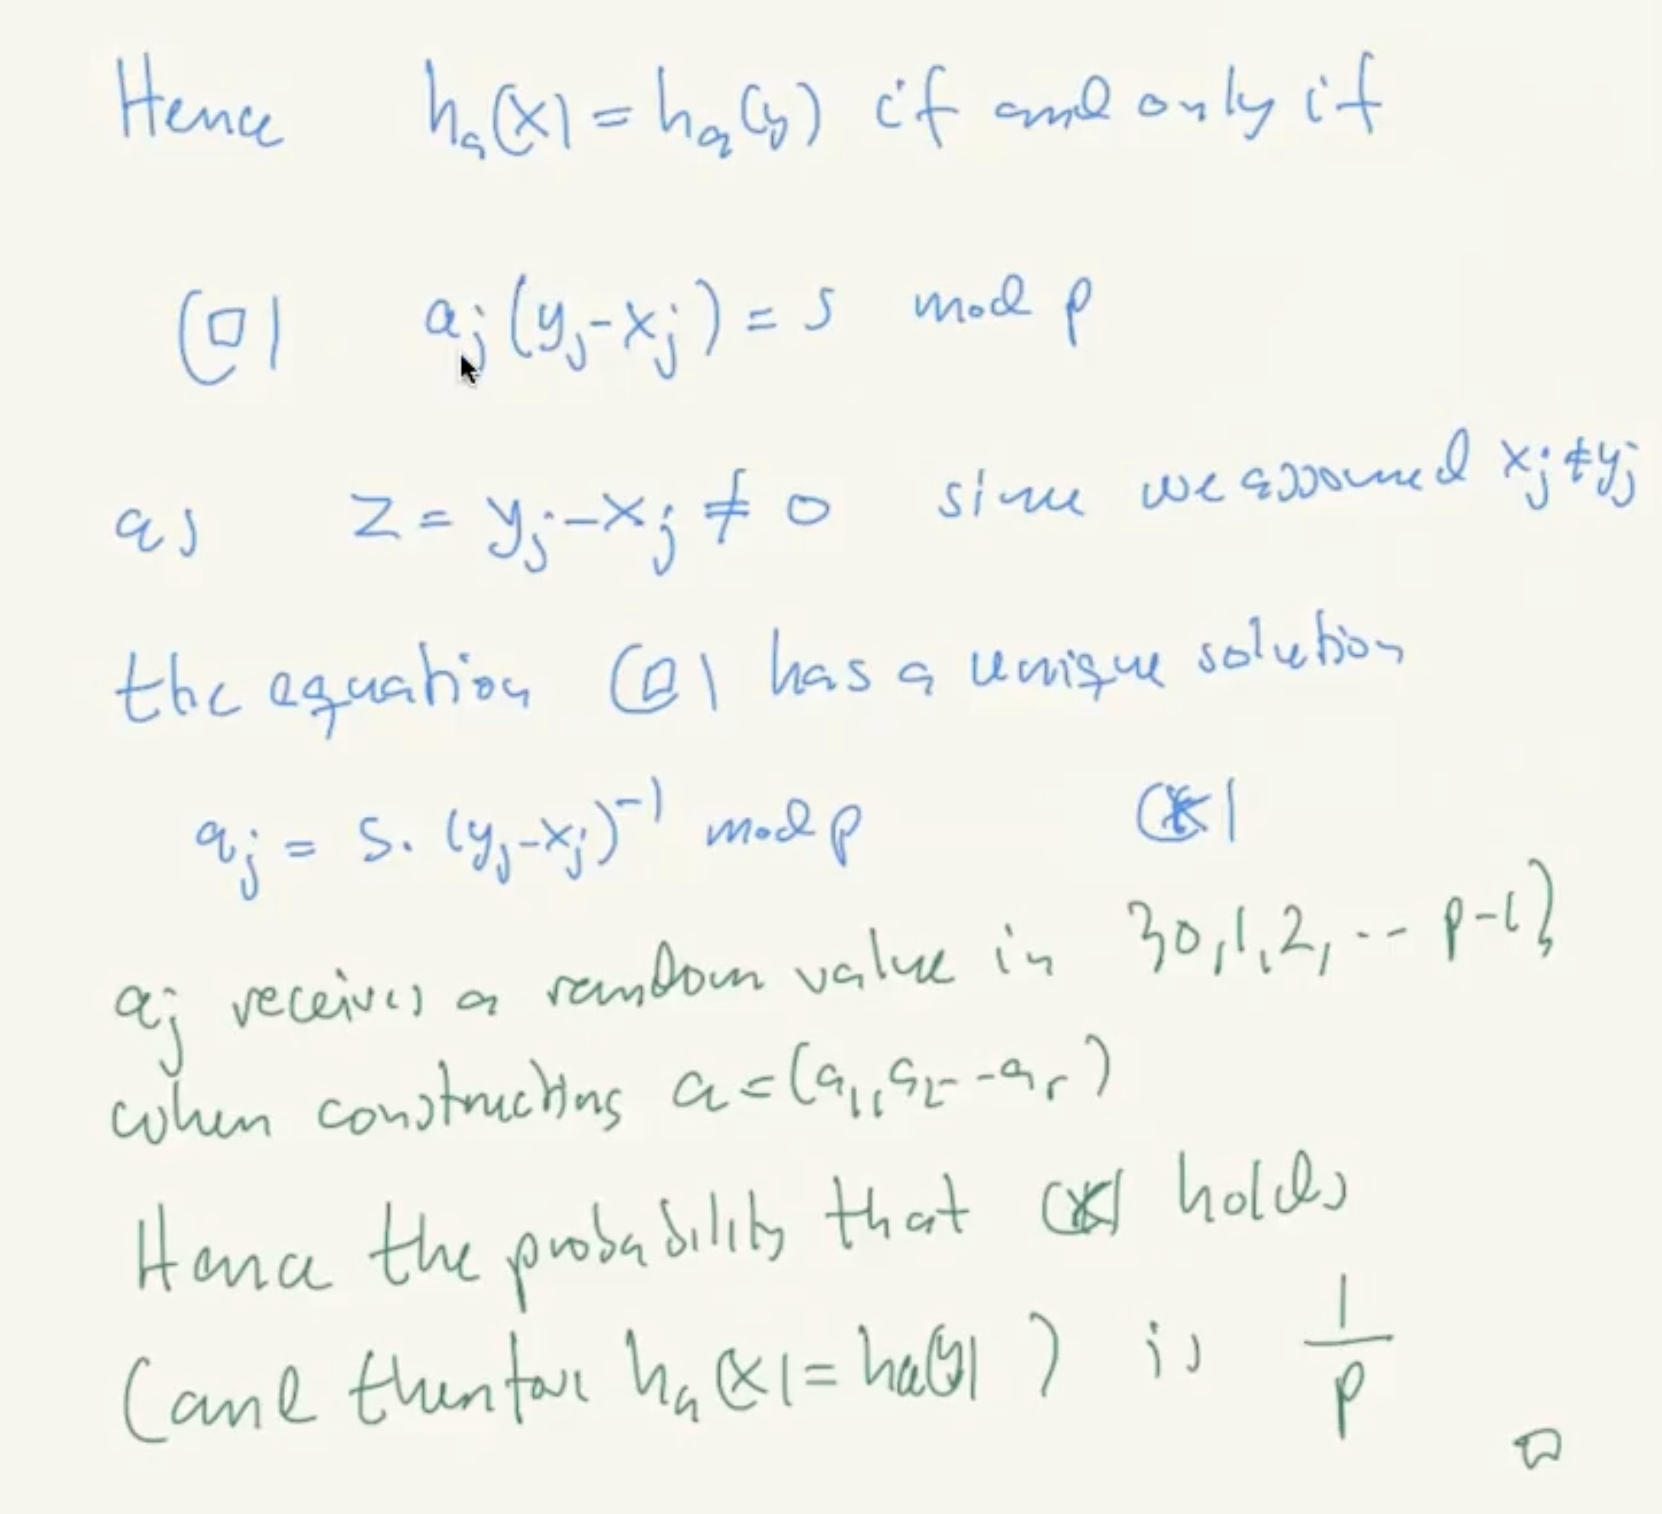 Hence h_a(x) = h_a(y) if and only if
(□) a_j (y_j - x_j) = s mod p
as z = y_j - x_j ≠ 0 since we assumed x_j ≠ y_j
the equation (□) has a unique solution
a_j = s · (y_j - x_j)^{-1} mod p (*)
a_j receives a random value in {0,1,2, -- p-1}
when constructing a = (a_1, a_2 -- a_r)
Hence the probability that (*) holds
(and therefore h_a(x) = h_a(y)) is 1/p
□